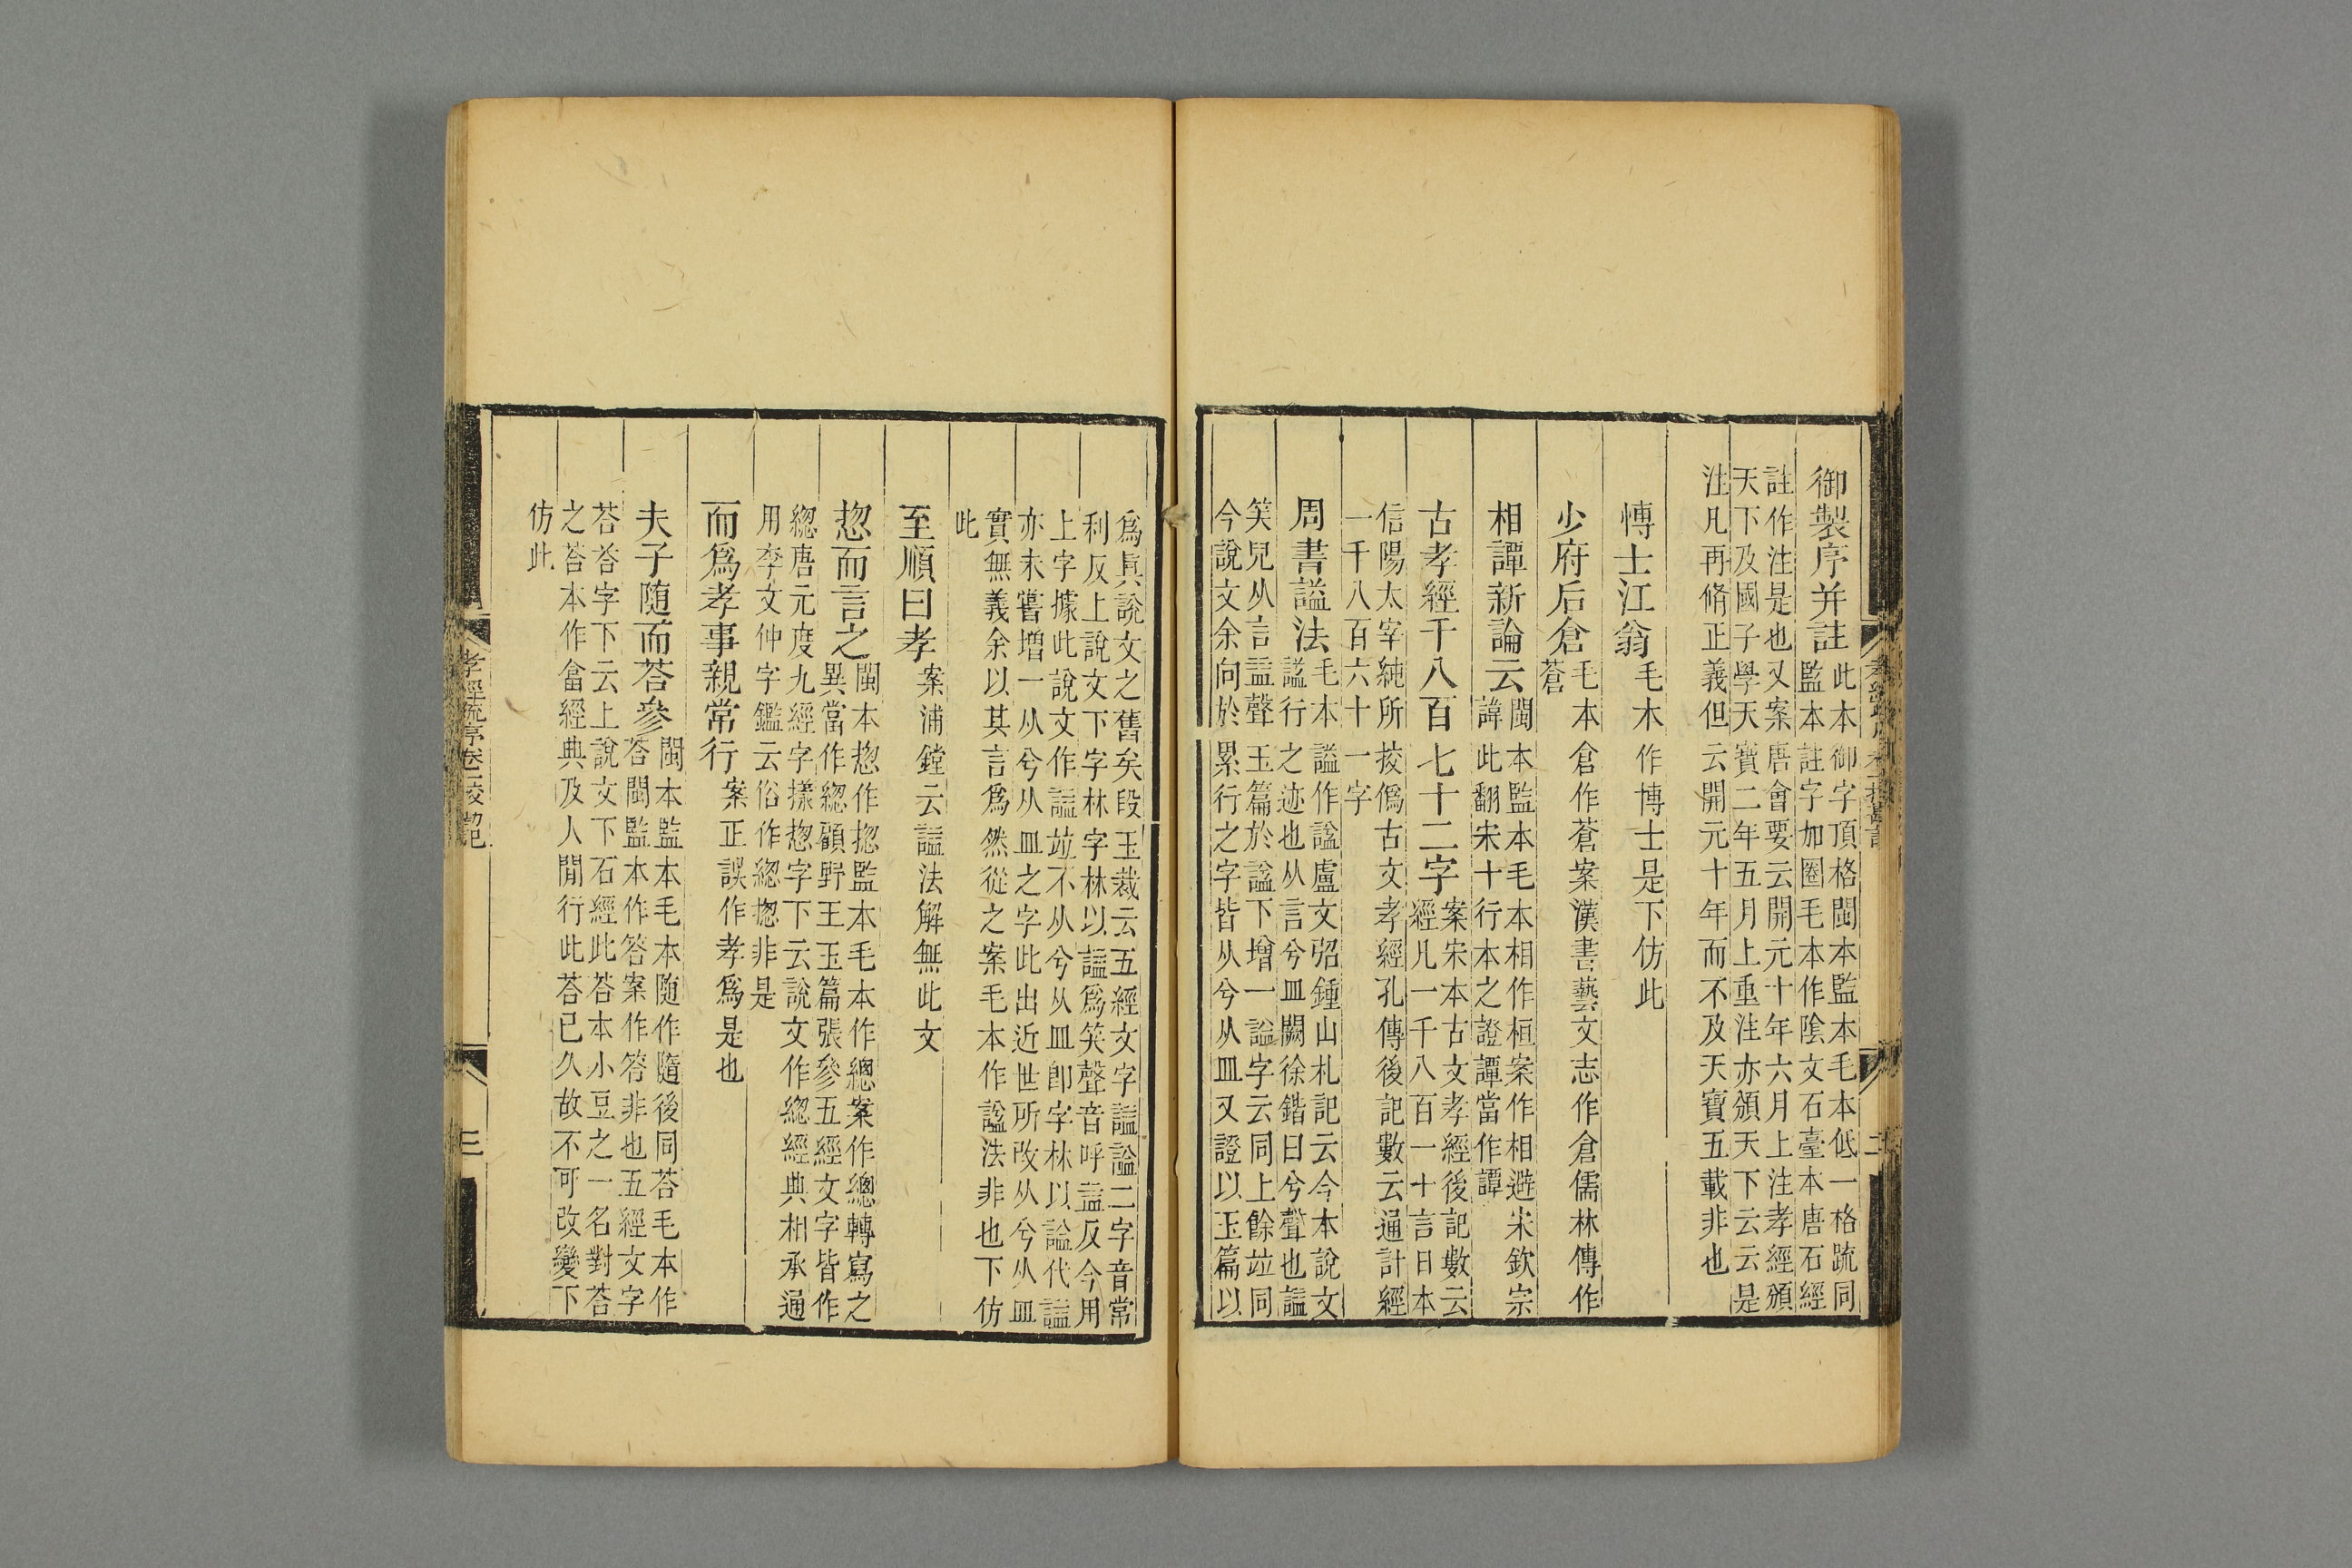 御製序并註 此本御字頂格閩本監本毛本低一格䟽同
監本註字加圈毛本作陰文石臺本唐石經
註作注是也又案唐會要云開元十年六月上注孝經頒
天下及國子學天寶二年五月上重注亦頒天下云云是
注凡再脩正義但云開元十年而不及天寶五載非也
愽士江翁 毛本作博士是下仿此
少府后倉 毛本倉作蒼案漢書藝文志作倉儒林傳作
蒼
相譚新論云 閩本監本毛本相作桓案作相避宋欽宗
諱此翻宋十行本之證譚當作譚
古孝經千八百七十二字 案宋本古文孝經後記數云
經凡一千八百一十言日本
信陽太宰純所挍僞古文孝經孔傳後記數云通計經
一千八百六十一字
周書謚法 毛本謚作諡盧文弨鍾山札記云今本說文
謚行之迹也从言兮皿闕徐鍇曰兮聲也謚
笑皃从言益聲玉篇於謚下增一諡字云同上餘竝同
今說文余向於累行之字皆从兮从皿又證以玉篇以
爲眞說文之舊矣段玉裁云五經文字謚諡二字音常
利反上說文下字林字林以謚爲笑聲音呼益反今用
上字據此說文作謚竝不从兮从皿卽字林以諡代謚
亦未嘗增一从兮从皿之字此出近世所改从兮从皿
實無義余以其言爲然從之案毛本作諡法非也下仿
此
至順曰孝 案浦鏜云謚法解無此文
揔而言之 閩本揔作摠監本毛本作總案作總轉寫之
異當作緫顧野王玉篇張參五經文字皆作
緫唐元度九經字㨾揔字下云說文作緫經典相承通
用李文仲字鑑云俗作緫揔非是
而爲孝事親常行 案正誤作孝爲是也
夫子隨而荅參 閩本監本毛本随作隨後同荅毛本作
答閩監本作答案作答非也五經文字
荅荅字下云上說文下石經此荅本小豆之一名對荅
之荅本作畣經典及人閒行此荅已久故不可改變下
仿此
孝經䟽序卷一挍勘記
二
孝經䟽序卷一挍勘記
三